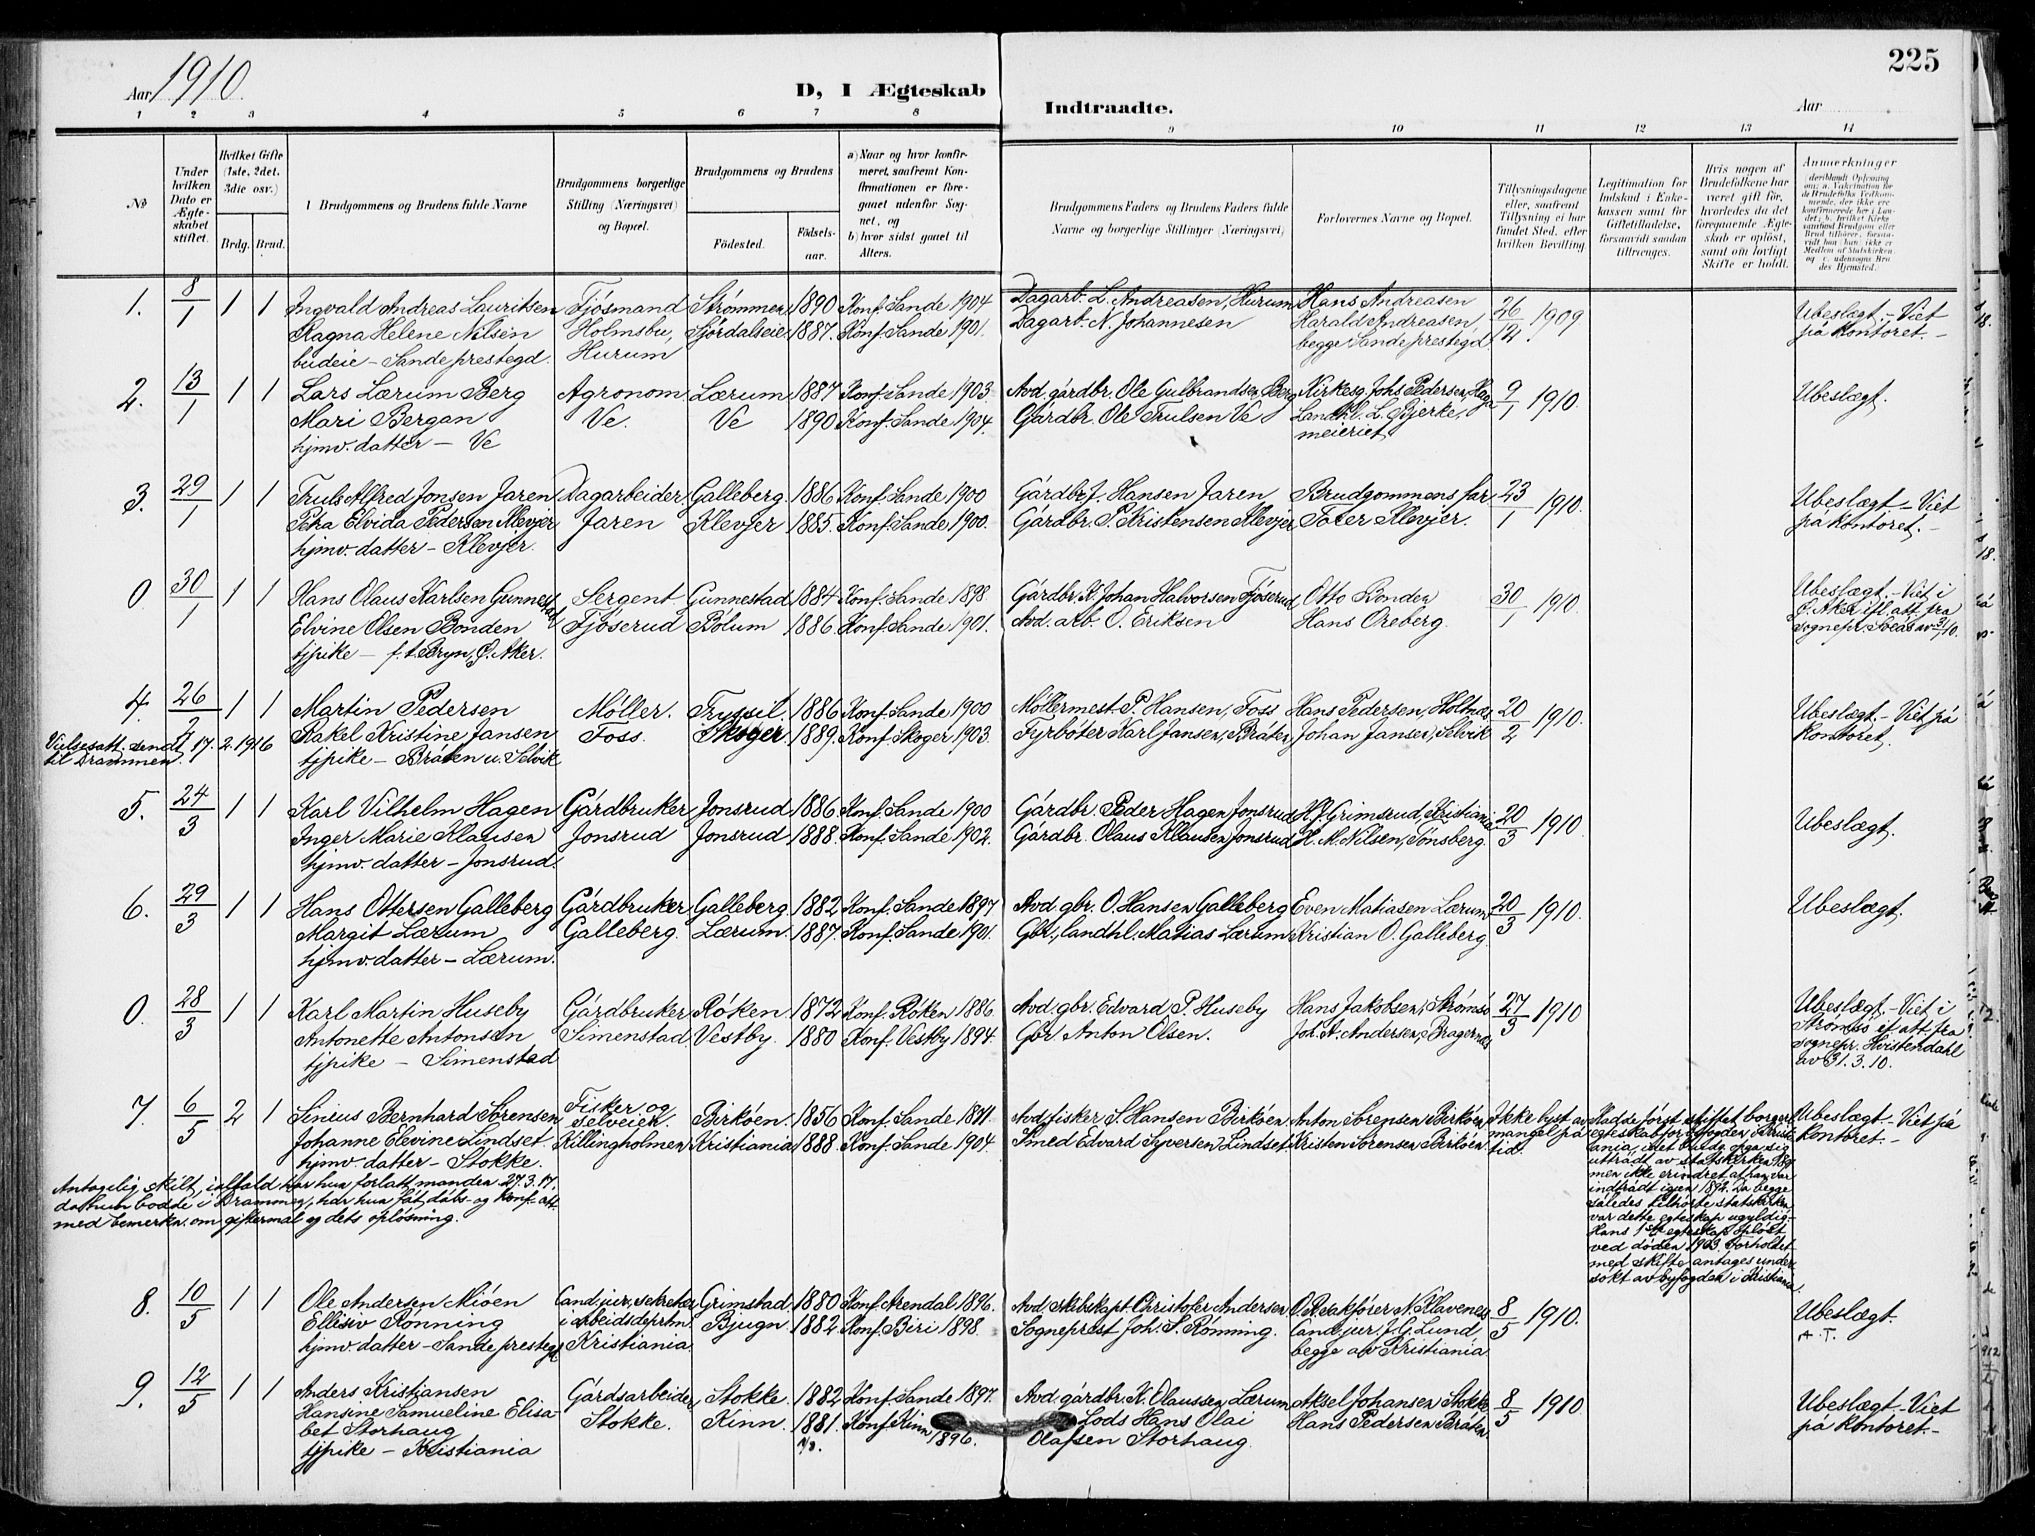 225
Aar 1910.
D, I Ægteskab
Indtraadte.
Aar
1 2 3 4 5 6 7 8 9 10 11 12 13 14
No
Under hvilken Dato er Ægteskabet stiftet.
Hvilket Gifte (1ste, 2det, 3die osv.)
Brdg. Brud.
Brudgommens og Brudens fulde Navne
Brudgommens borgerlige Stilling (Næringsvei) og Bopæl.
Brudgommens og Brudens
Fødested.
Fødselsaar.
a) Naar og hvor konfirmeret, saafremt Konfirmationen er foregaaet udenfor Sognet, og
b) hvor sidst gaaet til Alters.
Brudgommens Faders og Brudens Faders fulde Navne og borgerlige Stillinger (Næringsvei)
Forlovernes Navne og Bopæl.
Tillysningsdagene eller, saafremt Tillysning ei har fundet Sted, efter hvilken Bevilling.
Legitimation for Indskud i Enkekassen samt for Giftetilladelse, forsaavidt saadan tiltrænges.
Hvis nogen af Brudefolkene har været gift før, hvorledes da det foregaaende Ægteskab er opløst, samt om lovligt Skifte er holdt.
Anmærkninger
1. 8/1 1 1 Ingvald Andreas Lauritsen Fjøsmand Strømmen 1890 Konf. Sande 1904 Dagarb. L. Andreasen, Hurum Hans Andreasen 26/12 1909 Ubeslægt. - Viet
Ragna Helene Nilsen Holmsbu, Fjórdalseie 1887. Konf. Sande 1901. Dagarb. N. Johannesen Harald Andreasen på kontoret. -
budeie - Sande prestegd. Hurum begge Sande prestegd.
2. 13/1 1 1 Lars Lærum Berg Agronom Lærum 1887 Konf. Sande 1903. Avd. gårdbr. Ole Gulbrandsen Berg Kirkesg. Johs Pedersen, Haga 9/1 1910. Ubeslægt.
Mari Bergan Ve. Ve 1890 Konf. Sande 1904. Gårdbr. Ole Trulsen Ve Landhl. L. Bjerke,
hjmv. datter - Ve meieriet
3. 29/1 1 1 Truls Alfred Jonsen Jaren Dagarbeider Galleberg 1886 Konf. Sande 1900 Gårdbr. J. Hansen Jaren Brudgommens far 23/1 1910. Ubeslægt - Viet
Petra Elvida Pedersen Klevjer Jaren Klevjer 1885. Konf. Sande 1900. Gårdbr. P. Kristensen Klevjer Torer Klevjer. på kontoret. -
hjmv. datter - Klevjer.
0 30/1 1 1 Hans Olaus Karlsen Gunnestad Sergent Gunnestad 1884 Konf. Sande 1898 Gårdbr. K. Johan Halvorsen Fjøserud Otto Bonden 30/1 1910. Ubeslægt. - Viet i
Elvine Olsen Bonden Fjøserud Bolum 1886 Konf. Sande 1901. Avd. arb. O. Eriksen Hans Oreberg. Ø. Aker ifl. att. fra
tjpike - f. t. Bryn, Ø. Aker. sognepr. Sveås av 31/1 10.
4. 26/2 1 1 Martin Pedersen Møller. Tryssil 1886 Konf. Sande 1900 Møllermest. P. Hansen, Foss Hans Pedersen, Holtnes 20/2 1910. Ubeslægt. - Viet på
Rakel Kristine Jansen Foss. Skoger 1889. Konf. Skoger 1903. Fyrbøter Karl Jansen, Bråten Johan Jansen, Selvik Kontoret.
tjpike - Bråten u. Selvik
Vielsesatt. sendt 17. 2. 1916
til Drammen.
5. 24/3 1 1 Karl Vilhelm Hagen Gårdbruker Jonsrud 1886 Konf. Sande 1900 Gårdbr. Peder Hagen Jonsrud H. J. Grimsrud, Kristiania 20/3 1910. Ubeslægt.
Inger Marie Klausen Jonsrud Jonsrud 1888. Konf. Sande 1902. Gårdbr. Olaus Klausen Jonsrud H. M. Nilsen, Tønsberg.
hjmv. datter - Jonsrud.
6. 29/3 1 1 Hans Ottersen Galleberg Gårdbruker Galleberg 1882 Konf. Sande 1897 Avd. gbr. O. Hansen Galleberg Even Matiasen Lærum 20/3 1910. Ubeslægt.
Margit Lærum Galleberg. Lærum. 1887. Konf. Sande 1901. Gbr., landhl. Matias Lærum Kristian O. Galleberg
hjmv. datter - Lærum.
0. 28/3 1 1 Karl Martin Huseby Gårdbruker Røken 1872 Konf. Røken 1886. Avd. gbr. Edvard P. Huseby Hans Jakobsen, Strømsø 27/3 1910 Ubeslægt. - Viet i
Antonette Antonsen Simenstad. Vestby. 1880 Konf. Vestby 1894. Gbr Anton Olsen. Joh. A. Andersen, Bragernes Strømsø if. att. fra
tjpike - Simenstad sognepr. Hvistendahl
av 31. 3. 10.
7. 6/5 2 1 Sinius Bernhard Sørensen Fisker og selveier. Birkøen 1856 Konf. Sande 1871. Avd. fisker S. Hansen Birkøen Anton Sørensen Birkøen Ikke lyst av Ubeslægt - Viet på
Johanne Elevine Lindset Killingholmen Kristiania 1888. Konf. Sande 1904. Smed Edvard Syversen Lindset Kristen Sørensen Birkøen mangel på kontoret. -
hjmv. datter - Stokke. tid.
Hadde først stiftet borgerl.
egteskap for byfogden i Kristiania,
uttrådt av statskirken
men ikke erindret at han var
indtrådt igjen 1892. Da begge
således tilhørte statskirken,
var dette egteskap ugyldig.
Hans 1ste egteskap opløst
ved døden 1903. Forholdet
med skifte antages undersøkt av byfogden i Kristiania.
Antagelig skilt, ialfald har hun forlatt manden 27. 3. 17.
da hun bodde i Drammen, har hun fåt dåbs- og konf. att.
med bemerkn. om giftermål og dets opløsning.
8. 10/5 1 1 Ole Andersen Miøen Cand. jur., sekretær Grimstad 1880 Konf. Arendal 1896. Avd. skibskapt. Christofer Andersen O. Redaktører N. Klavenes 8/5 1910. Ubeslægt.
Ellisiv Rønning i arbeidsdeprtm. Bjugn. 1882 Konf. Biri 1898. Sogneprest Joh. S. Rønning. Cand. jur. J. G. Lund A. T.
hjmv. datter - Sande prestegd. Kristiania begge av Kristiania
9. 12/5 1 1 Anders Kristiansen Gårdsarbeider Stokke. 1882 Konf. Sande 1897. Avd. gårdbr. K. Olaussen Lærum Aksel Johansen Stokke 8/5 1910 Ubeslægt - Viet
Hansine Samueline Elisabet Storhaug Stokke. Kinn. 1881. Konf. Kinn 1896. Lods Hans Olai Hans Pedersen Bråten på kontoret. -
tjpike - Kristiania Olafsen Storhaug.